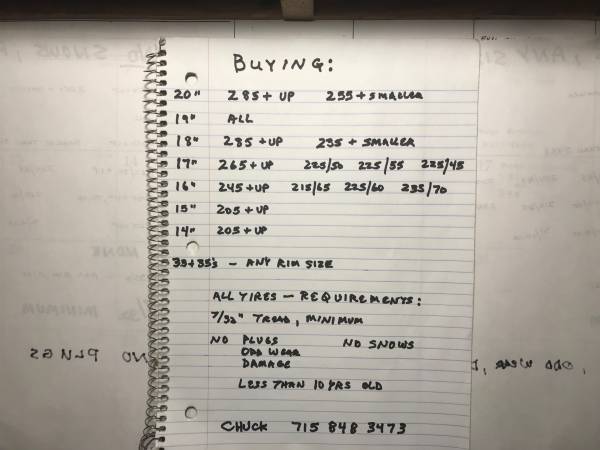 BUYING:
20" 285+ UP 255+SMALLER
19" ALL
18" 285+UP 235+SMALLER
17" 265+UP 225/50 225/55 225/45
16" 245+UP 215/65 225/60 235/70
15" 205+UP
14" 205+UP
33+35's - ANY RIM SIZE
ALL TIRES - REQUIREMENTS:
7/32" TREAD, MINIMUM
NO PLUGS NO SNOWS
ODD WEAR
DAMAGE
LESS THAN 10 YRS OLD
CHUCK 715 848 3473
NO PLUGS
, ODD WEAR,
MINIMUM